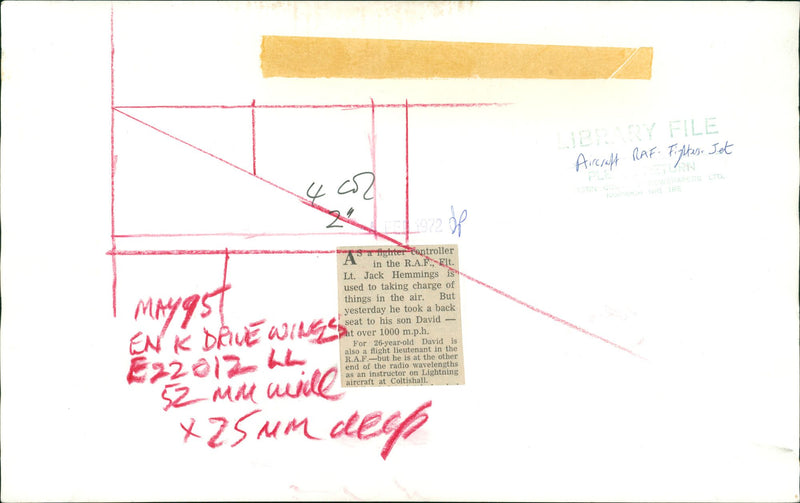 LIBRARY FILE
Aircraft RAF. Fighter Jet
RETURN
4 COL
2"
1972
As a fighter controller
in the R.A.F., Flt.
Lt. Jack Hemmings is
used to taking charge of
things in the air. But
yesterday he took a back
seat to his son David —
at over 1000 m.p.h.
For 26-year-old David is
also a flight lieutenant in the
R.A.F.—but he is at the other
end of the radio wavelengths
as an instructor on Lightning
aircraft at Coltishall.
MAY 95
EN K DRIVE WINGS
E22012 LL
52 MM wide
x 25 MM deep